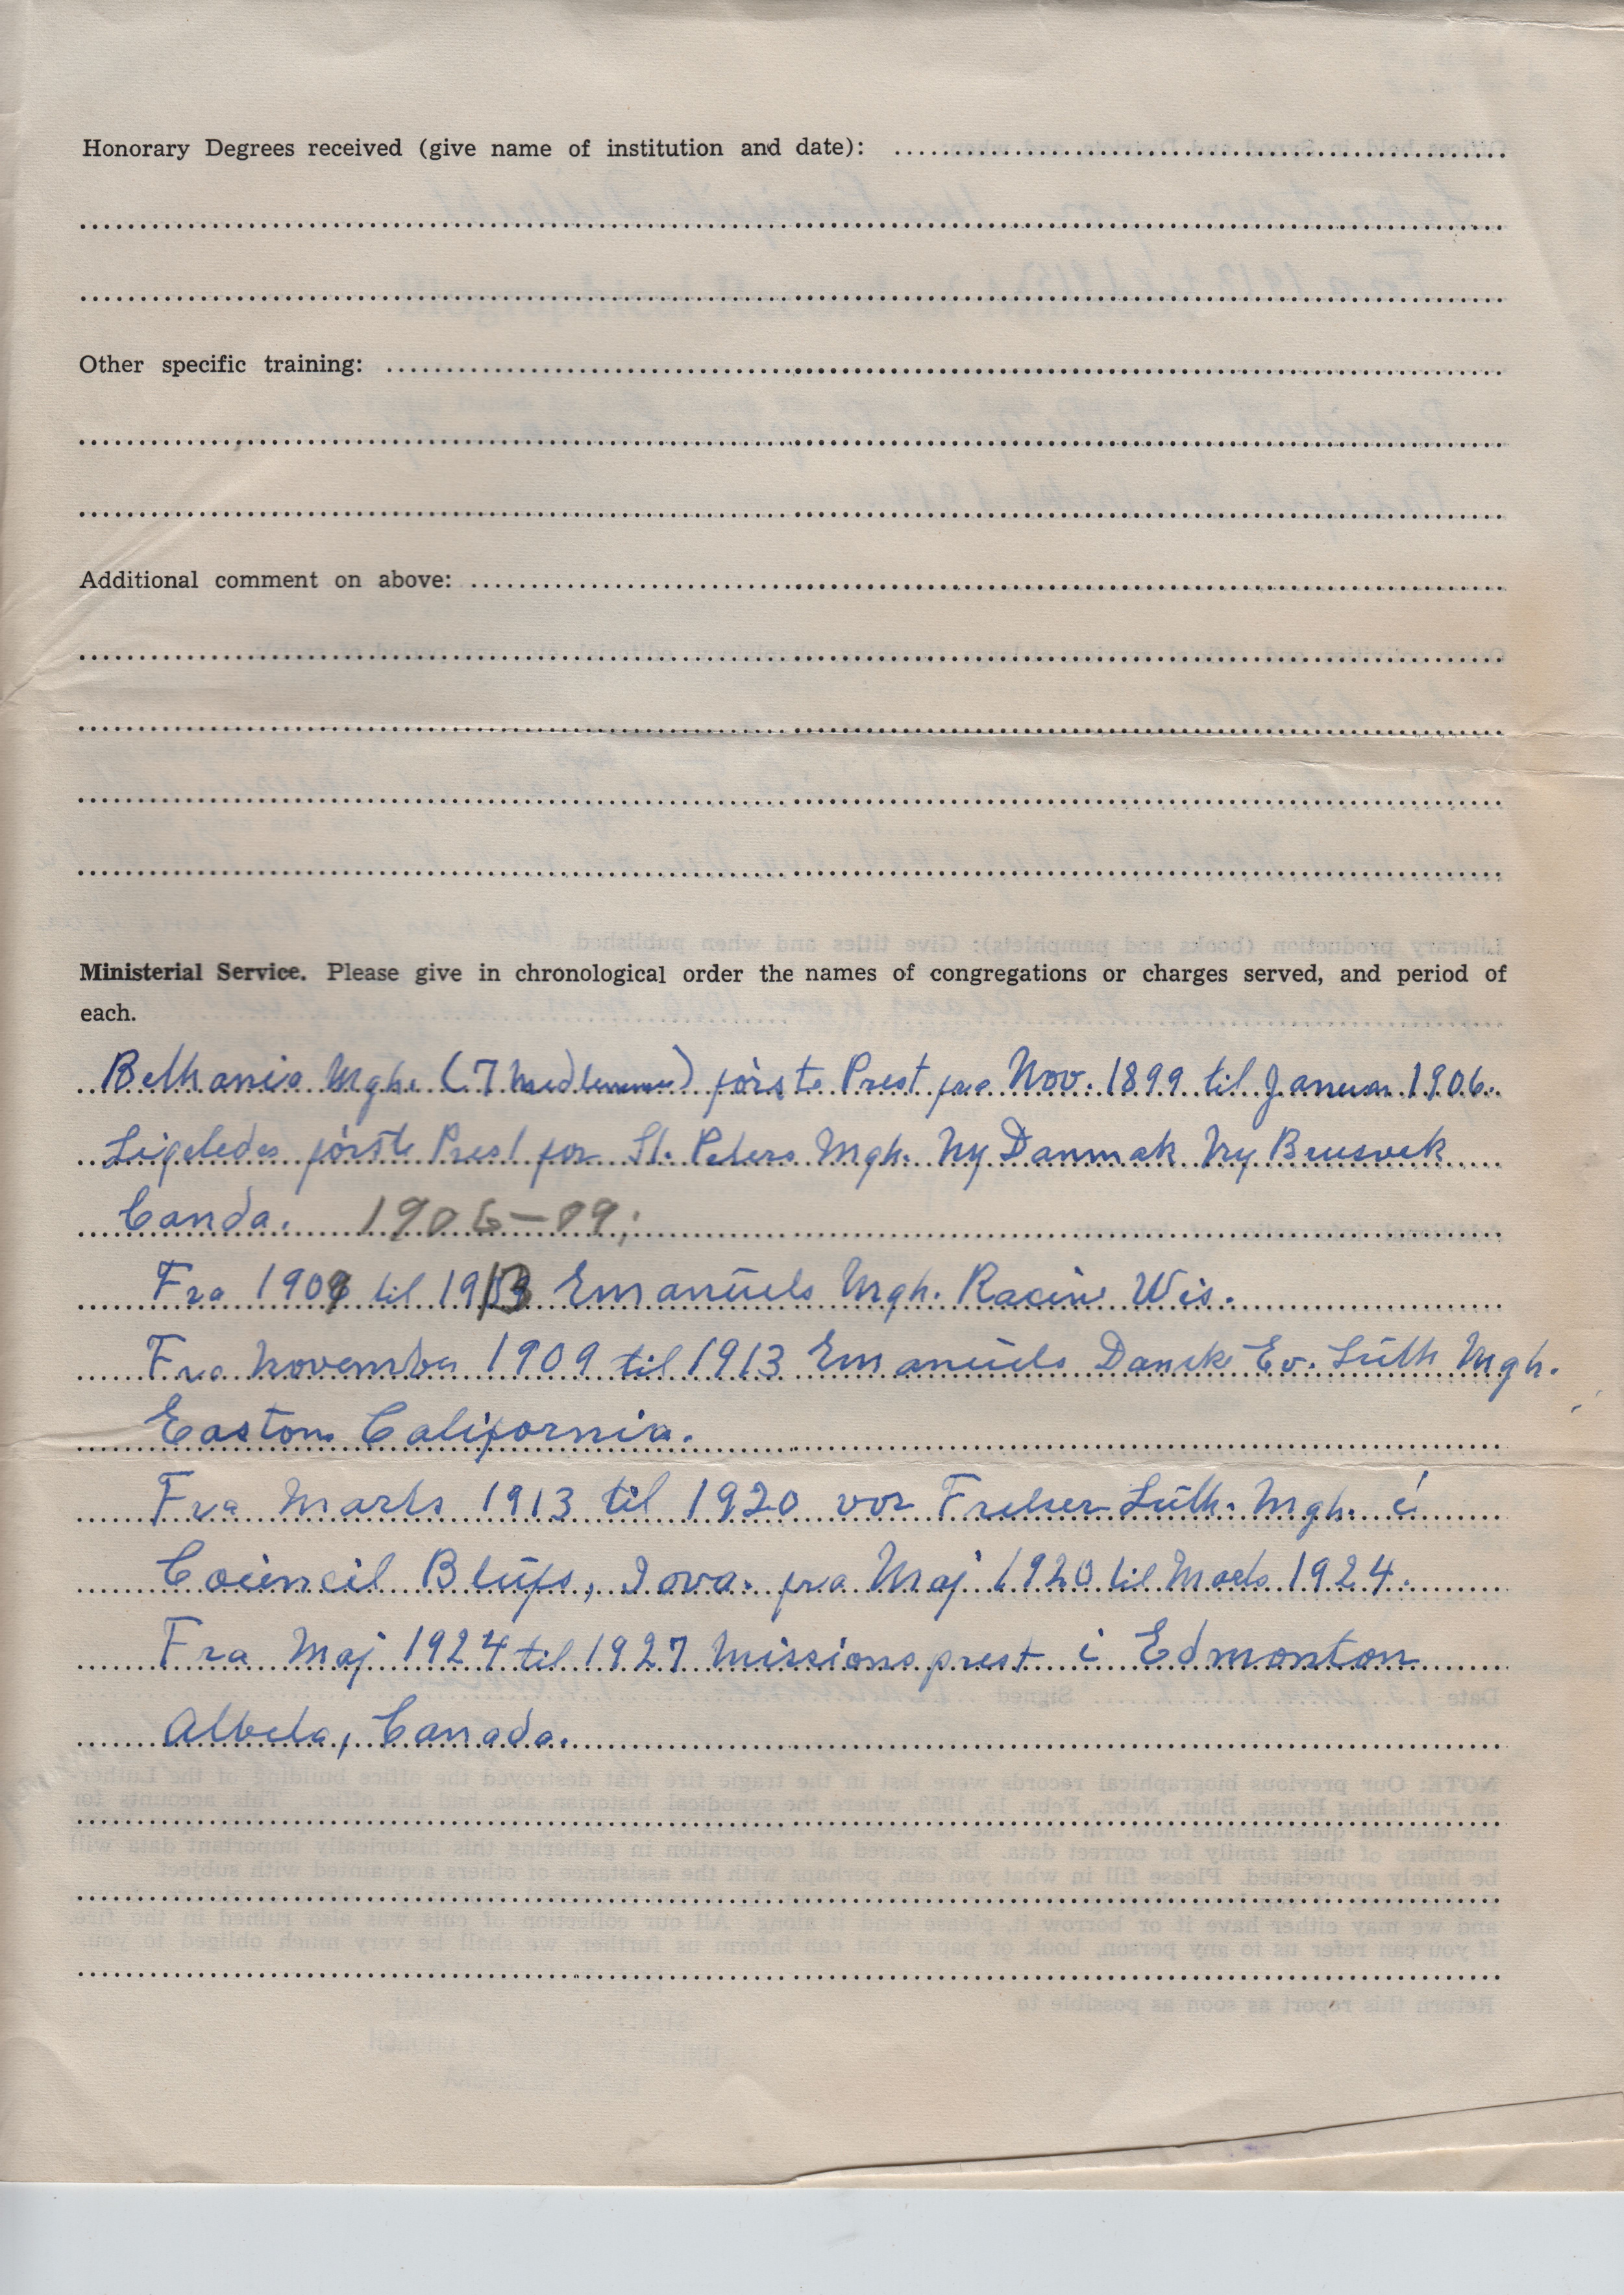 Honorary Degrees received (give name of institution and date):
Other specific training:
Additional comment on above:
Ministerial Service. Please give in chronological order the names of congregations or charges served, and period of
each.
Bethania Mgh. (7 Medlemmer) förste Prest fra Nov. 1899 til Januar 1906.
Ligeledes förste Prest for St. Peters Mgh. Ny Danmak Ny Brusvek
Canda. 1906-09;
Fra 1909 til 1913 Emanuels Mgh. Racine Wis.
Fra November 1909 til 1913 Emanuels Danske Ev. Luth Mgh.
Easton California.
Fra Marts 1913 til 1920 vor Frelser Luth. Mgh. i
Council Blufs, Iova. fra Maj 1920 til Marts 1924.
Fra Maj 1924 til 1927 Missionsprest i Edmonton
Albeta, Canada.